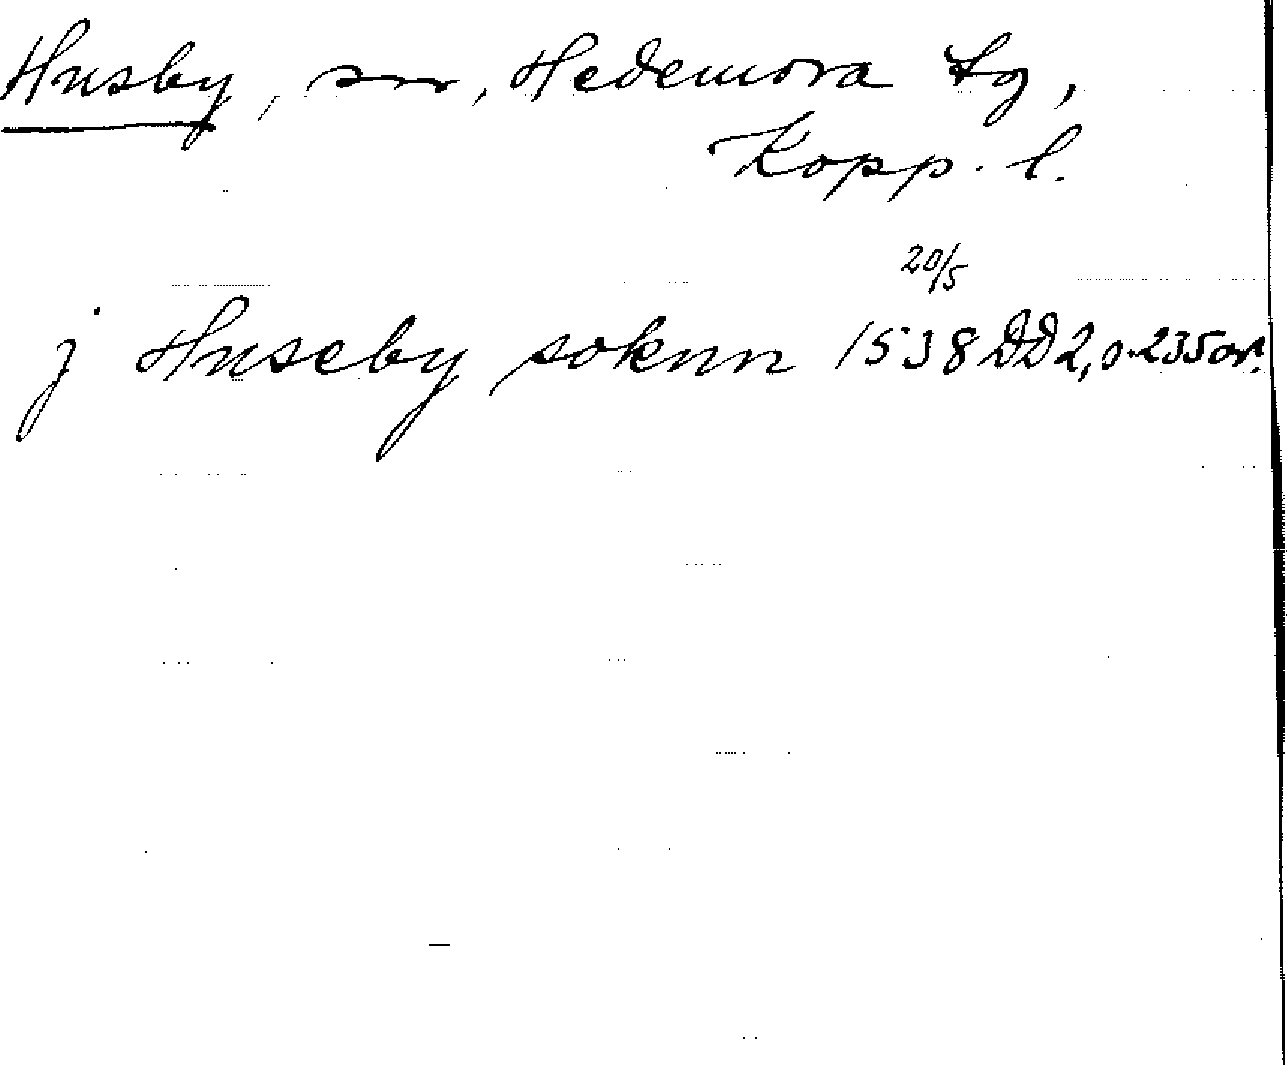 Husby, sn, Hedemora tg,
Kopp. l.
20/5
j Huseby soknn 1538 DD2, o. 235 or.